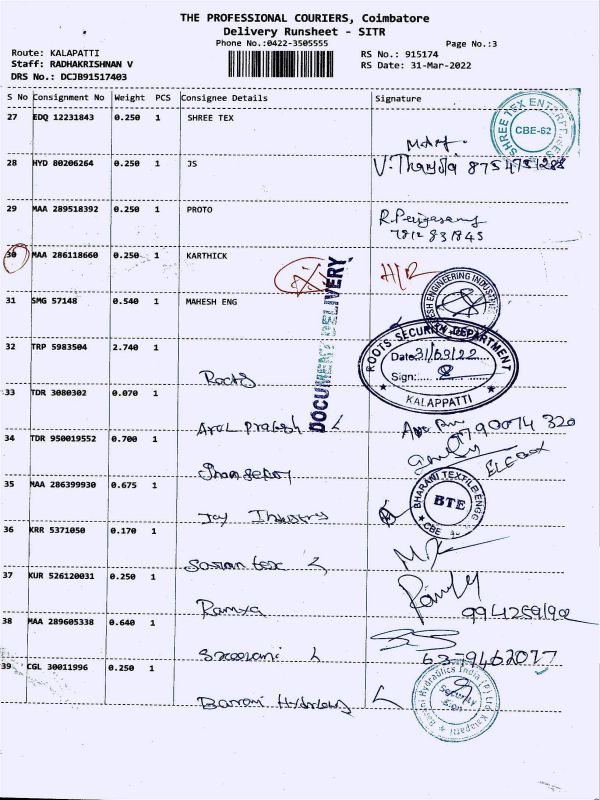 THE PROFESSIONAL COURIERS, Coimbatore
Delivery Runsheet - SITR
Phone No.:0422-3505555
Page No.:3
Route: KALAPATTI
Staff: RADHAKRISHNAN V
DRS No.: DCJB91517403
RS No.: 915174
RS Date: 31-Mar-2022
S No Consignment No Weight PCS Consignee Details Signature
27 EDQ 12231843 0.250 1 SHREE TEX
SHREE TEX ENTERPRISES CBE-62
28 HYD 80206264 0.250 1 JS
29 MAA 289518392 0.250 1 PROTO
R. Periyasamy
7812831845
30 MAA 286118660 0.250 1 KARTHICK
H/R
DOCUMENT DELIVERY
31 SMG 57148 0.540 1 MAHESH ENG
ENGINEERING INDUSTRIES
32 TRP 5983504 2.740 1
Roots
ROOTS SECURITY DEPARTMENT
Date 31/03/22
Sign:
KALAPPATTI
33 TDR 3080302 0.070 1
Arul Prakash
34 TDR 950019552 0.700 1
35 MAA 286399930 0.675 1
BHARANI TEXTILE ENGG
BTE
CBE
36 KRR 5371050 0.170 1
37 KUR 526120031 0.250 1
Ramya
38 MAA 289605338 0.640 1
63-79462077
39 CGL 30011996 0.250 1
Barani Hydraulics India (P) Ltd Kalapatti
Security Sign